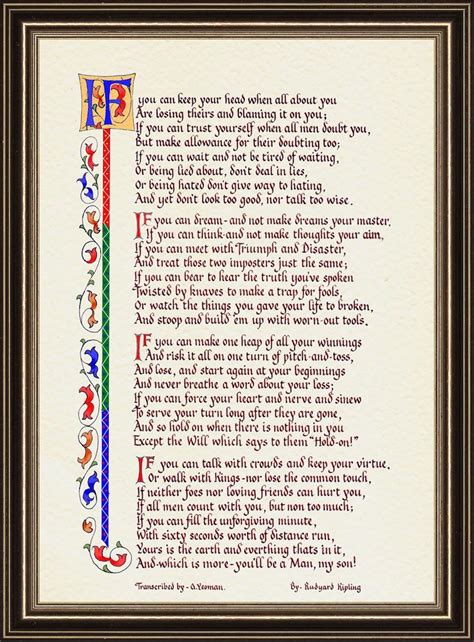 IF you can keep your head when all about you
Are losing theirs and blaming it on you;
If you can trust yourself when all men doubt you,
But make allowance for their doubting too;
If you can wait and not be tired of waiting,
Or being lied about, don't deal in lies,
Or being hated don't give way to hating,
And yet don't look too good, nor talk too wise.
IF you can dream-and not make dreams your master.
If you can think-and not make thoughts your aim.
If you can meet with Triumph and Disaster,
And treat those two imposters just the same;
If you can bear to hear the truth you've spoken
Twisted by knaves to make a trap for fools,
Or watch the things you gave your life to broken,
And stoop and build 'em up with worn-out tools.
IF you can make one heap of all your winnings
And risk it all on one turn of pitch-and-toss,
And lose, and start again at your beginnings
And never breathe a word about your loss;
If you can force your heart and nerve and sinew
To serve your turn long after they are gone,
And so hold on when there is nothing in you
Except the Will which says to them "Hold-on!"
IF you can talk with crowds and keep your virtue,
Or walk with Kings-nor lose the common touch,
If neither foes nor loving friends can hurt you,
If all men count with you, but non too much;
If you can fill the unforgiving minute,
With sixty seconds worth of distance run,
Yours is the earth and everthing thats in it,
And-which is more-you'll be a Man, my son!
Transcribed by - A.Yeoman. By - Rudyard Kipling